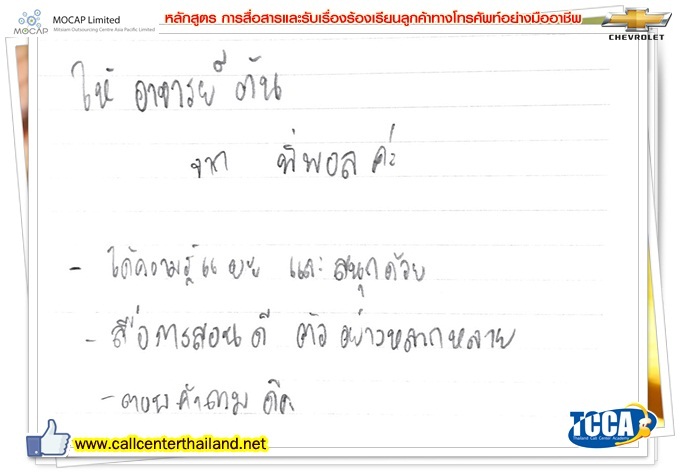 MOCAP Limited
Mitsiam Outsourcing Centre Asia Pacific Limited
MOCAP
หลักสูตร การสื่อสารและรับเรื่องร้องเรียนลูกค้าทางโทรศัพท์อย่างมืออาชีพ
CHEVROLET
ให้ อาจารย์ ตัน
จาก พี่พอล ค่ะ
- ได้ความรู้เยอะ และสนุกด้วย
- สื่อการสอนดี ตัวอย่างหลากหลาย
- ตอบคำถามดีค่ะ
www.callcenterthailand.net
TCCA
Thailand Call Center Academy